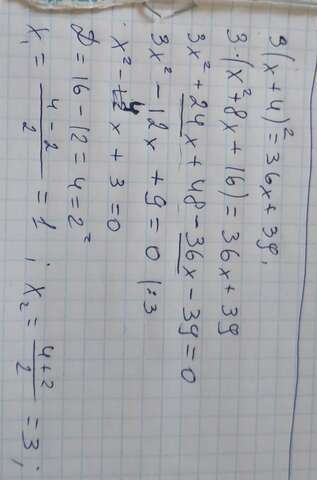 3(x+4)² = 36x + 39;
3·(x²+8x+16) = 36x + 39
3x² + 24x + 48 - 36x - 39 = 0
3x² - 12x + 9 = 0 |:3
x² - 4x + 3 = 0
D = 16 - 12 = 4 = 2²
x₁ = (4-2)/2 = 1; x₂ = (4+2)/2 = 3;